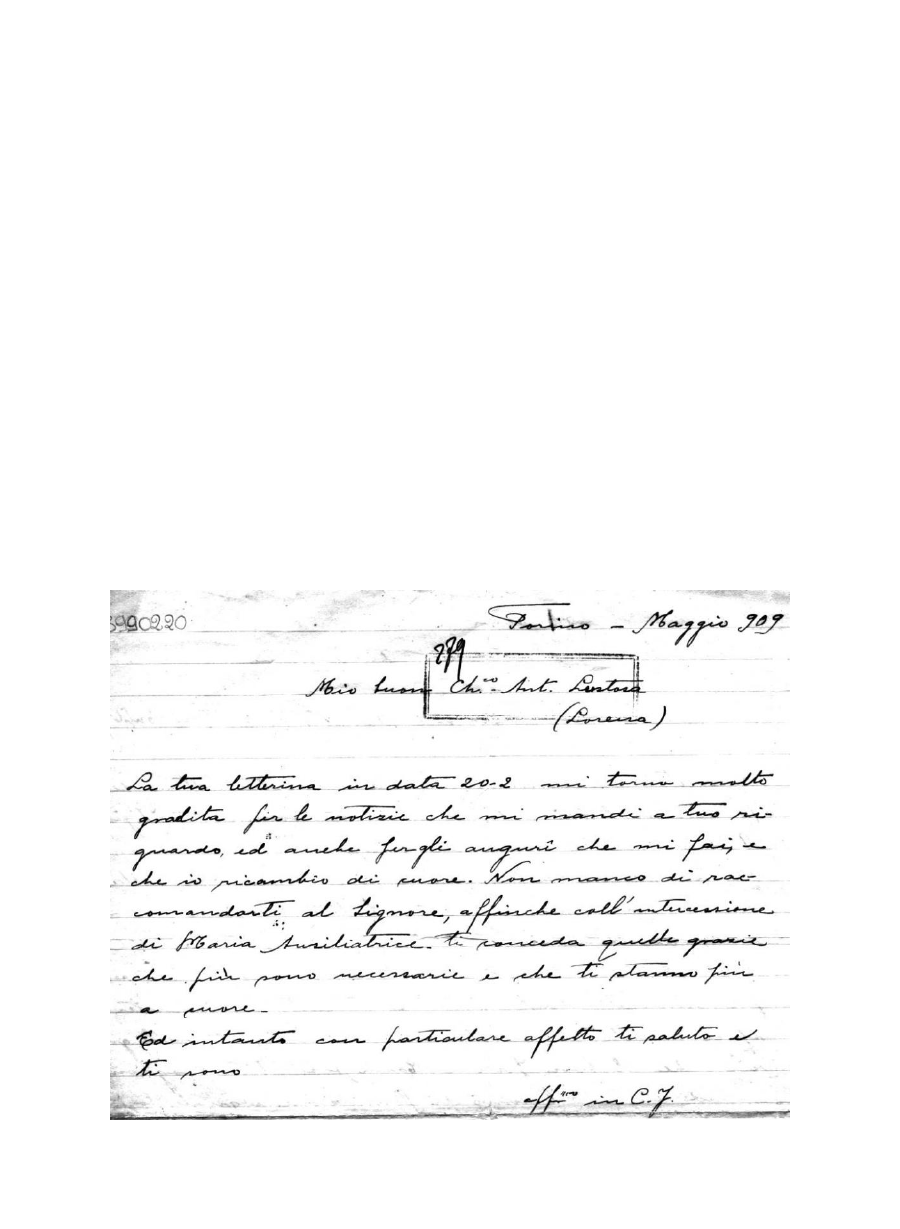 3990220
Torino - Maggio 909
279
Mio buon Ch.co Ant. Lustosa
(Lorena)
La tua letterina in data 20-2 mi torna molto
gradita per le notizie che mi mandi a tuo ri-
guardo, ed anche per gli auguri che mi fai, e
che io ricambio di cuore. Non manco di rac-
comandarti al Signore, affinche coll'intercessione
di Maria Ausiliatrice ti conceda quelle grazie
che più sono necessarie e che ti stanno più
a cuore.
Ed intanto con particulare affetto ti saluto e
ti sono
aff.mo in C.J.